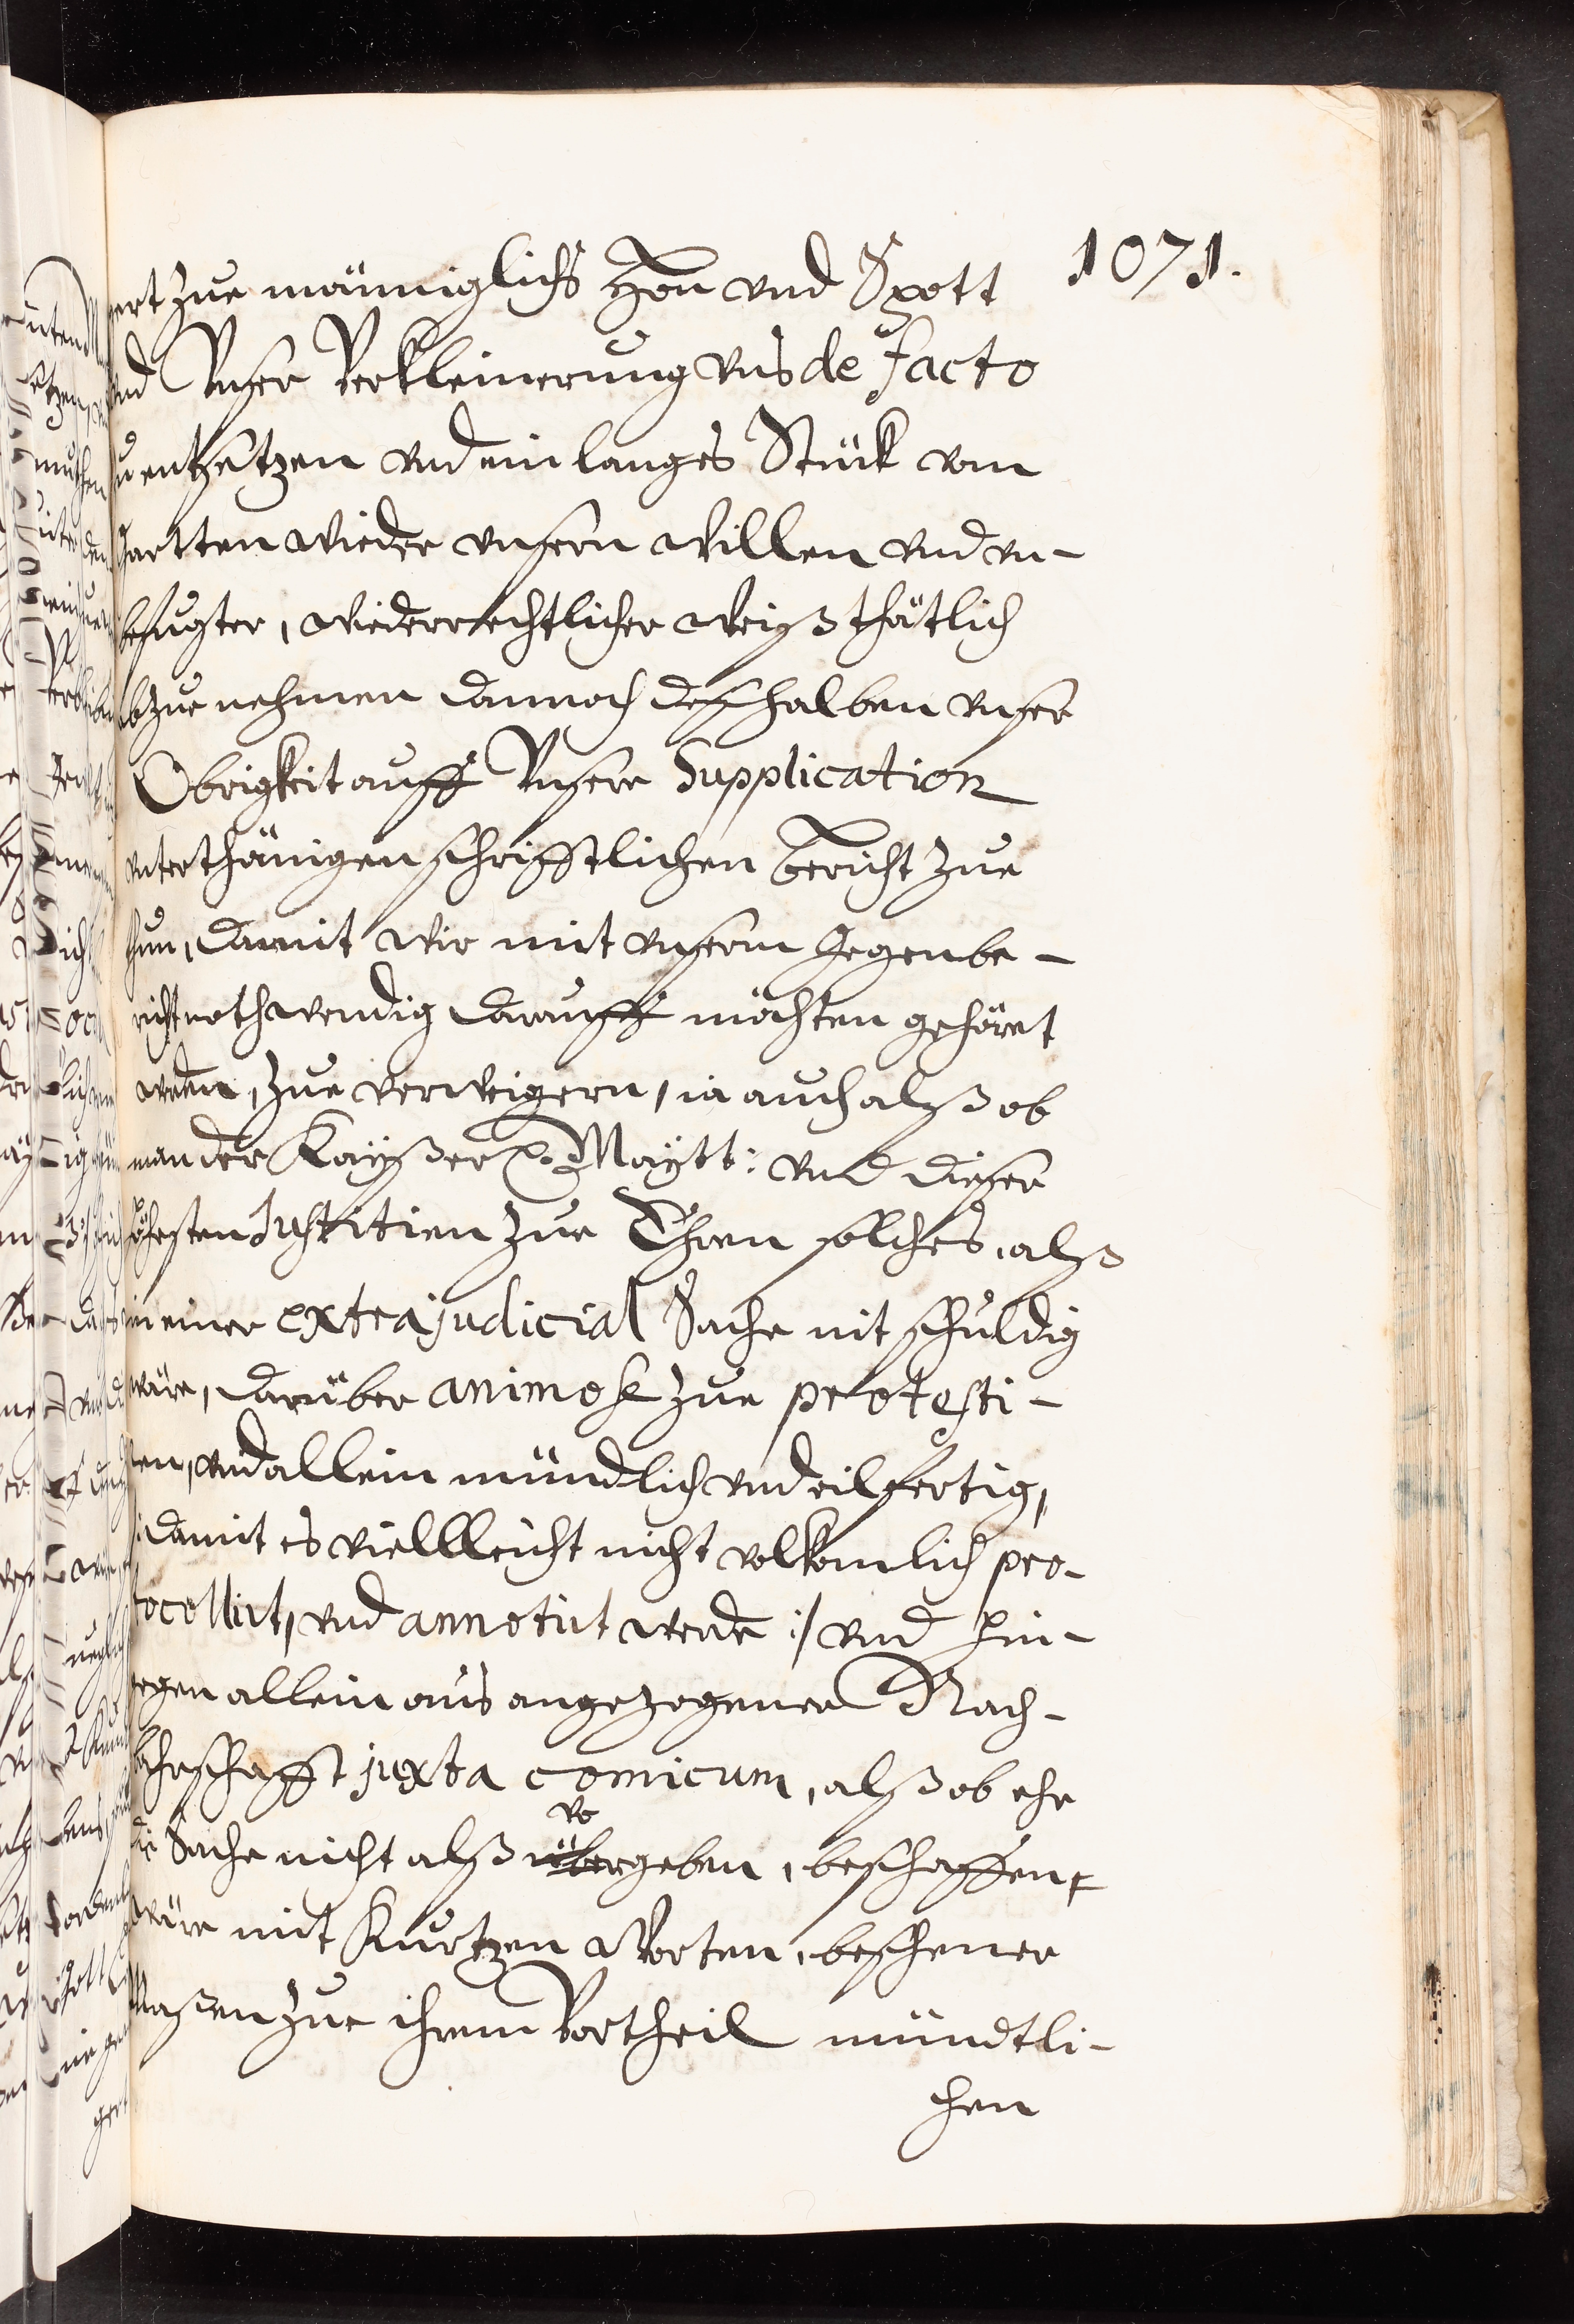 1071.
gert zue männiglichs Hon vnd Spott
vnd Vnser Verkleinerung vns de facto
zu entsetzen vnd ein langes Stück vom
Gartten wieder vnsern Willen vnd vn-
befugter, wiederrechtlicher Weiß thätlich
abzue nehmen dannoch desshalben vnser
Obrigkeit auff Vnsere Supplication
vnterthänigen schrifftlichen bericht zue
thun, damit wir mit vnserm Gegenbe-
richt nothwendig darauff möchten gehöret
werden, zue verweigern, ia auch alß ob
man der Kaÿßer. Maÿtt: vnd dieser
höchsten Justitien zue Ehren solches, alß
in einer extrajudicial Sache nit schuldig
wäre, darüber animose zue protesti-
ren, vnd allein mündlich vnd eilfertig,
damit es viellleicht nicht volkomlich pro-
tocollirt, vnd annotirt werde :/ vnd hin-
gegen allein aus angezogener Nach-
bahrschafft juxta comicum, alß ob ehe
die Sache nicht alß vorgeben, beschaffen,
wäre mit Kurtzen Worten, beschener
Maßen zue ihrem Vortheil mündtli-
chen